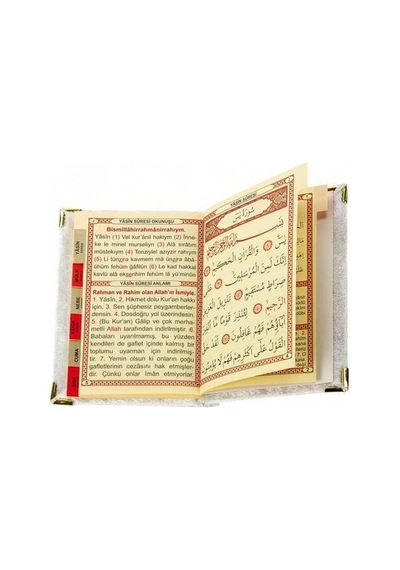 YÂSÎN SÛRESİ OKUNUŞU
Bismillâhirrahmânirrahıym.
Yâsîn (1) Vel kur'ânil hakıym (2) İnne-
ke le minel murselîyn (3) Alâ sırâtım
müstekıym (4) Tenziylel aziyzir rahıym
(5) Li tünzira kavmem mâ ünzira âbâ-
ühüm fehüm ğâfilûn (6) Le kad hakkal
kavlü alâ ekserihim fehüm lâ yü'minûn
YÂSÎN SÛRESİ ANLAMI
Rahman ve Rahim olan Allah'ın İsmiyle,
1. Yâsîn, 2. Hikmet dolu Kur'an hakkı
için, 3. Sen şüphesiz peygamberler-
densin. 4. Dosdoğru yol üzerindesin.
5. (Bu Kur'an) Gâlip ve çok merha-
metli Allah tarafından indirilmiştir. 6.
Babaları uyarılmamış, bu yüzden
kendileri de gaflet içinde kalmış bir
toplumu uyarman için indirilmiş-
tir. 7. Yemin olsun ki onların çoğu
gafletlerinin cezâsını hak etmişler-
dir. Çünkü onlar îmân etmiyorlar.
YÂSÎN
MÜLK
NEBE
CUMA
YÂSÎN SÛRESİ
سُورَةُ يٰسٓ
يٰسٓ ۝ وَالْقُرْاٰنِ الْحَكِيمِ ۝
اِنَّكَ لَمِنَ الْمُرْسَلِينَ ۝ عَلٰى
صِرَاطٍ مُسْتَقِيمٍ ۝ تَنْزِيلَ الْعَزِيزِ
الرَّحِيمِ ۝ لِتُنْذِرَ قَوْمًا مَٓا اُنْذِرَ
اٰبَٓاؤُ۬هُمْ فَهُمْ غَافِلُونَ ۝ لَقَدْ حَقَّ
الْقَوْلُ عَلٰٓى اَكْثَرِهِمْ فَهُمْ لَا يُؤْمِنُونَ